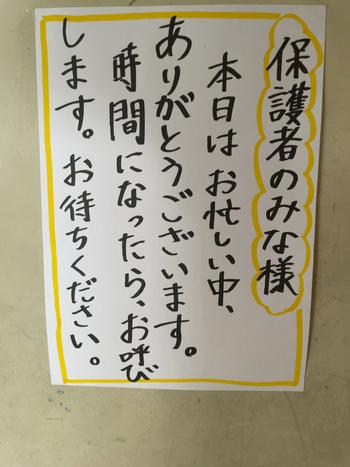 保護者のみな様
本日はお忙しい中、
ありがとうございます。
時間になったら、お呼び
します。お待ちください。